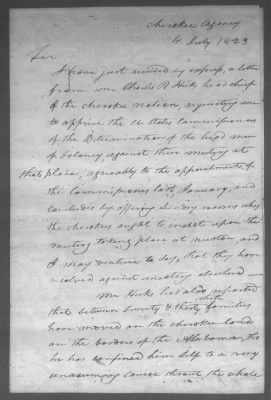 Cherokee Agency
4 July 1823
Sir
I have just received by express, a letter
from Mr Charles R Hicks head chief
of the Cherokee nation, requesting me
to apprise the U States Commissioners
of the Determination of the head men
of against their meeting at
that place, agreeably to the appointment of
the Commissioners last January, and
concludes by offering sundry reasons why
the cherokees ought to insist upon the
meeting taking place at newton, and
I may venture to say, that they have
resolved against meeting elsewhere —
Mr Hicks has also reported
that between twenty & thirty families
have moved on the cherokee lands
on the borders of the Alabama, tho
he has confined him self to a very
unassuming course throut the whole